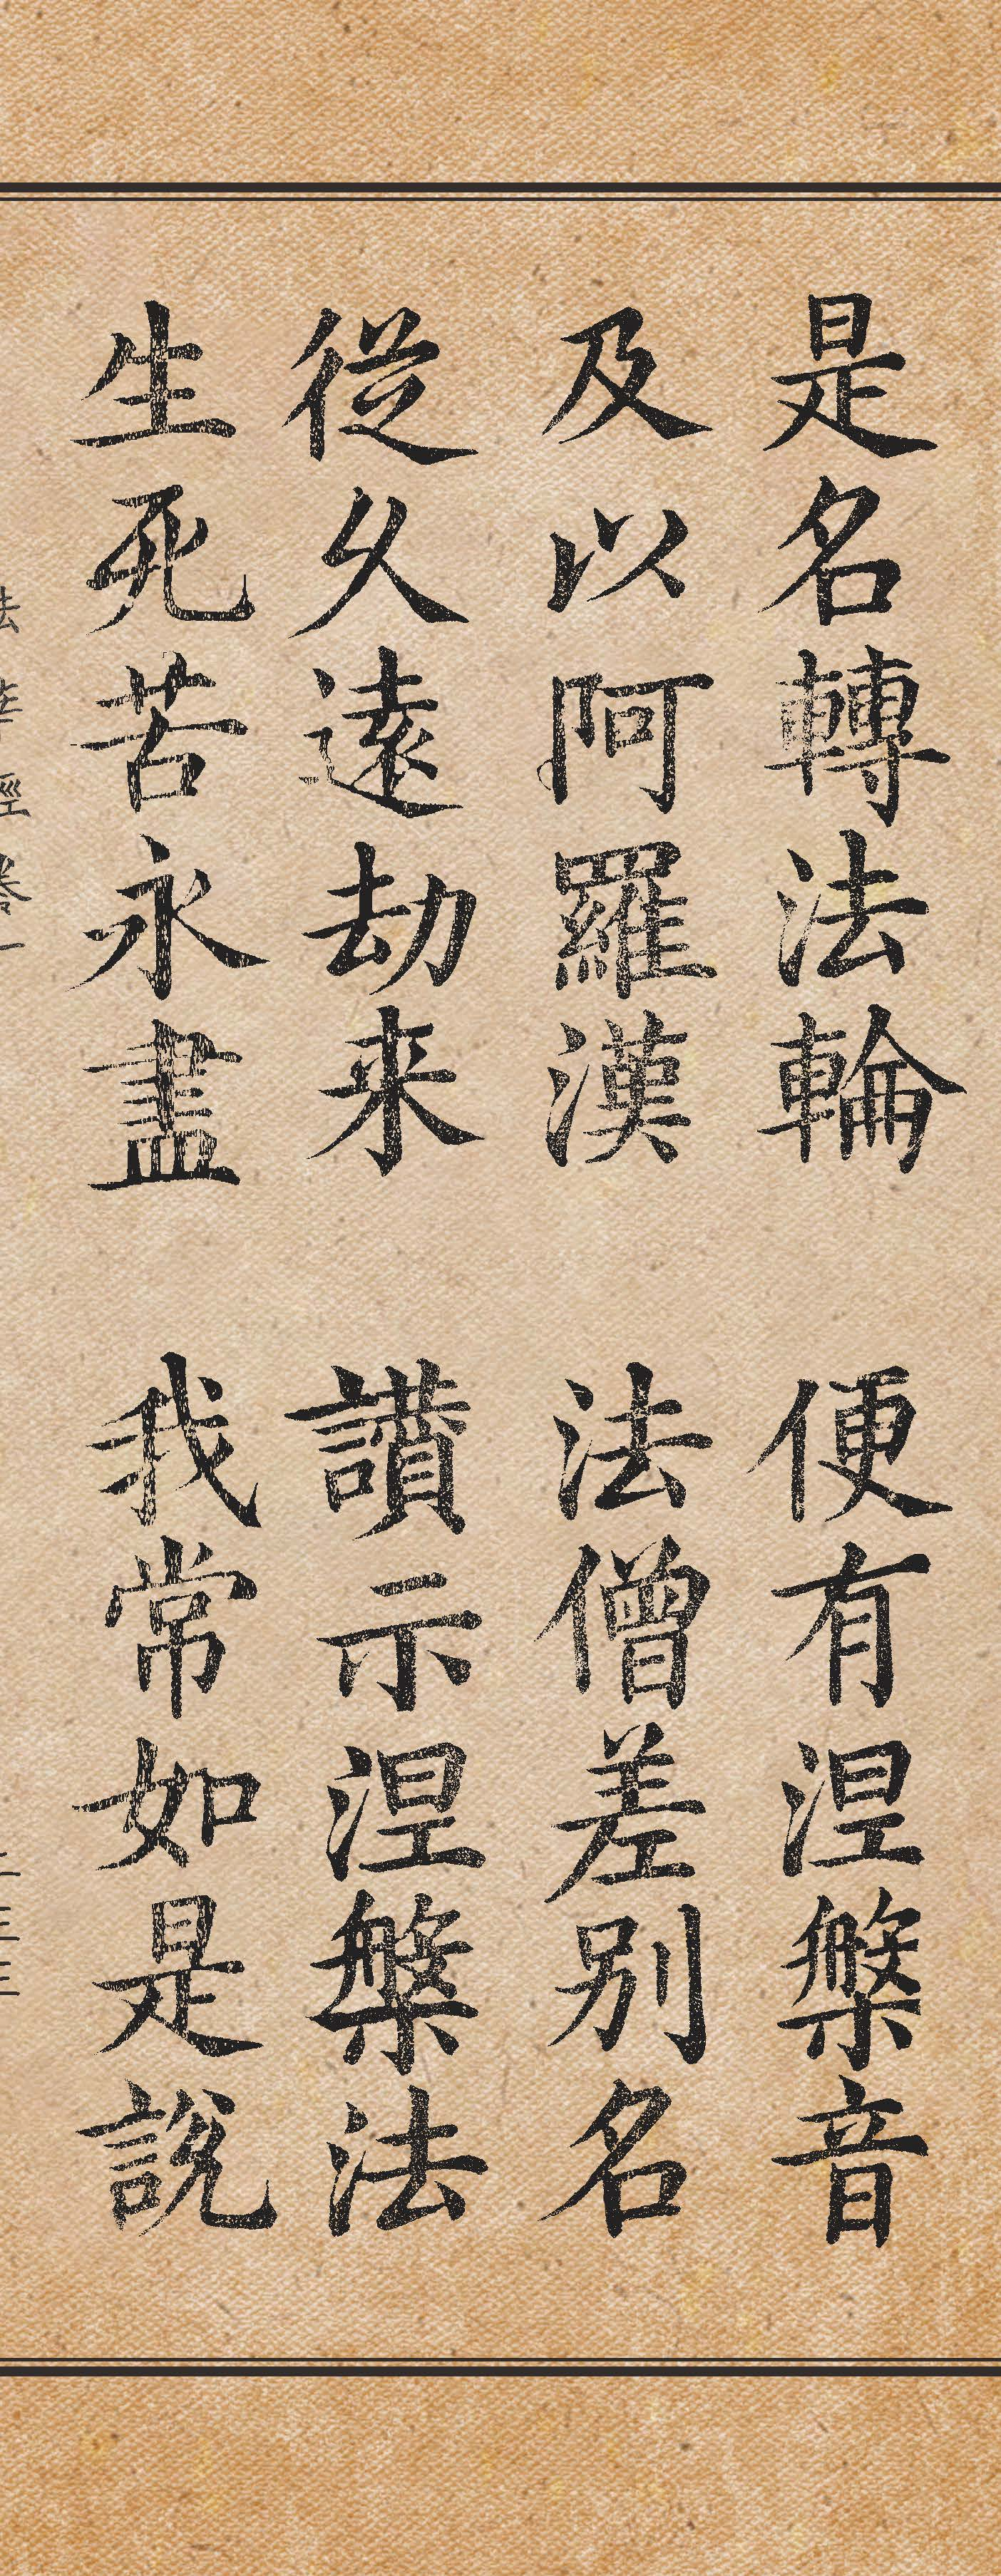 是名轉法輪　便有涅槃音
及以阿羅漢　法僧差別名
從久遠劫来　讃示涅槃法
生死苦永盡　我常如是說
法華經卷一　二三三